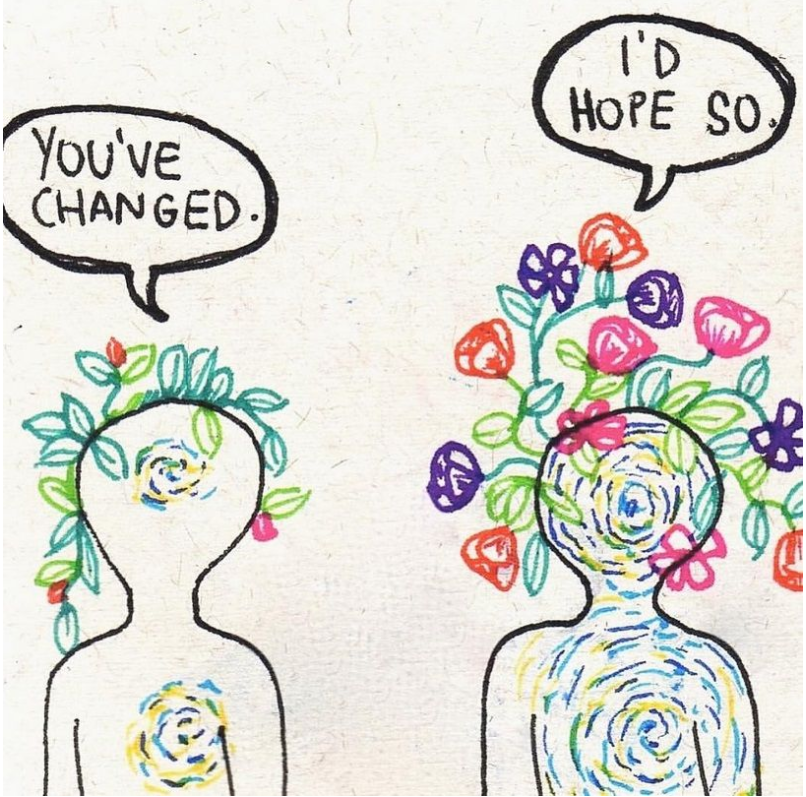 YOU'VE
CHANGED.
I'D
HOPE SO.